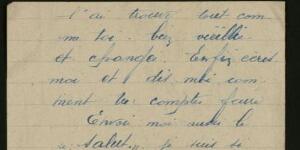 J'ai trouvé tout com
me toi. bez vieilli
et changé. Enfin écris
moi et dis moi com
ment tu comptes faire
Envoi moi aussi le
"Salut" je suis si